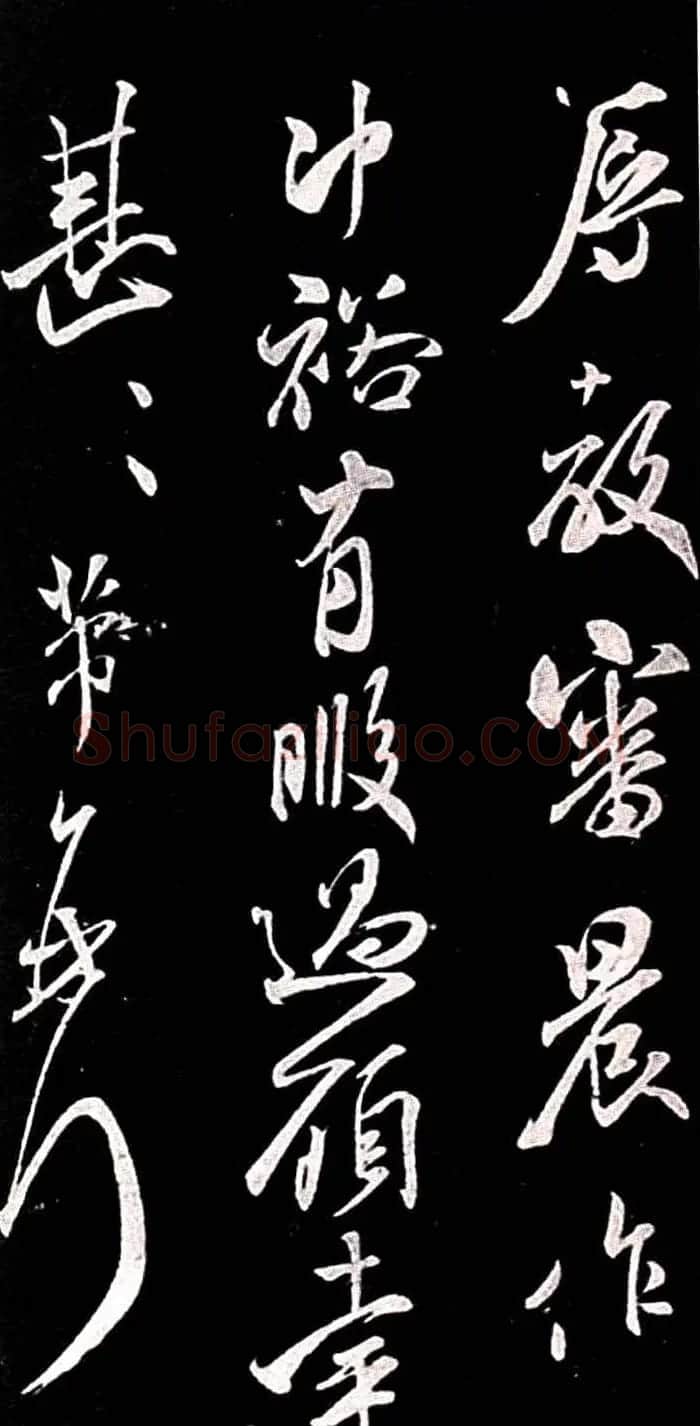 辱教審晨作
沖裕有暇過顧幸
甚〻芾頓首
Shufaziliao.COM